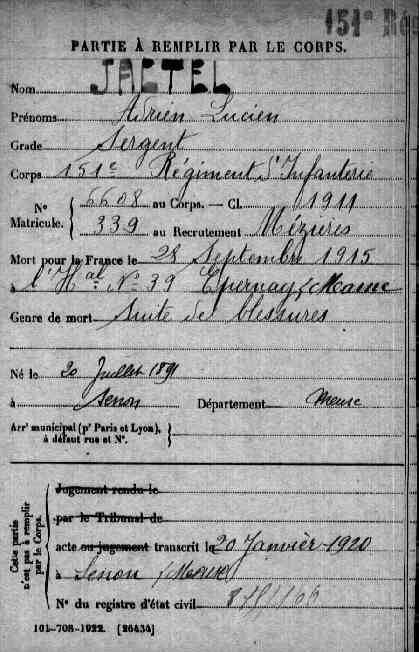 151e Ré
PARTIE À REMPLIR PAR LE CORPS.
Nom JACTEL
Prénoms Adrien Lucien
Grade Sergent
Corps 151e Régiment d'Infanterie
No Matricule. { 6608 au Corps. — Cl. 1911
339 au Recrutement Mézières
Mort pour la France le 28 Septembre 1915
à l'Hal No 39 Epernay (Marne
Genre de mort Suite de blessures
Né le 20 Juillet 1891
à Senon Département Meuse
Arrt municipal (pr Paris et Lyon), à défaut rue et No. }
Cette partie n'est pas à remplir par le Corps.
Jugement rendu le
par le Tribunal de
acte ou jugement transcrit le 20 Janvier 1920
à Senon (Meuse)
No du registre d'état civil
101-708-1922. [26434]